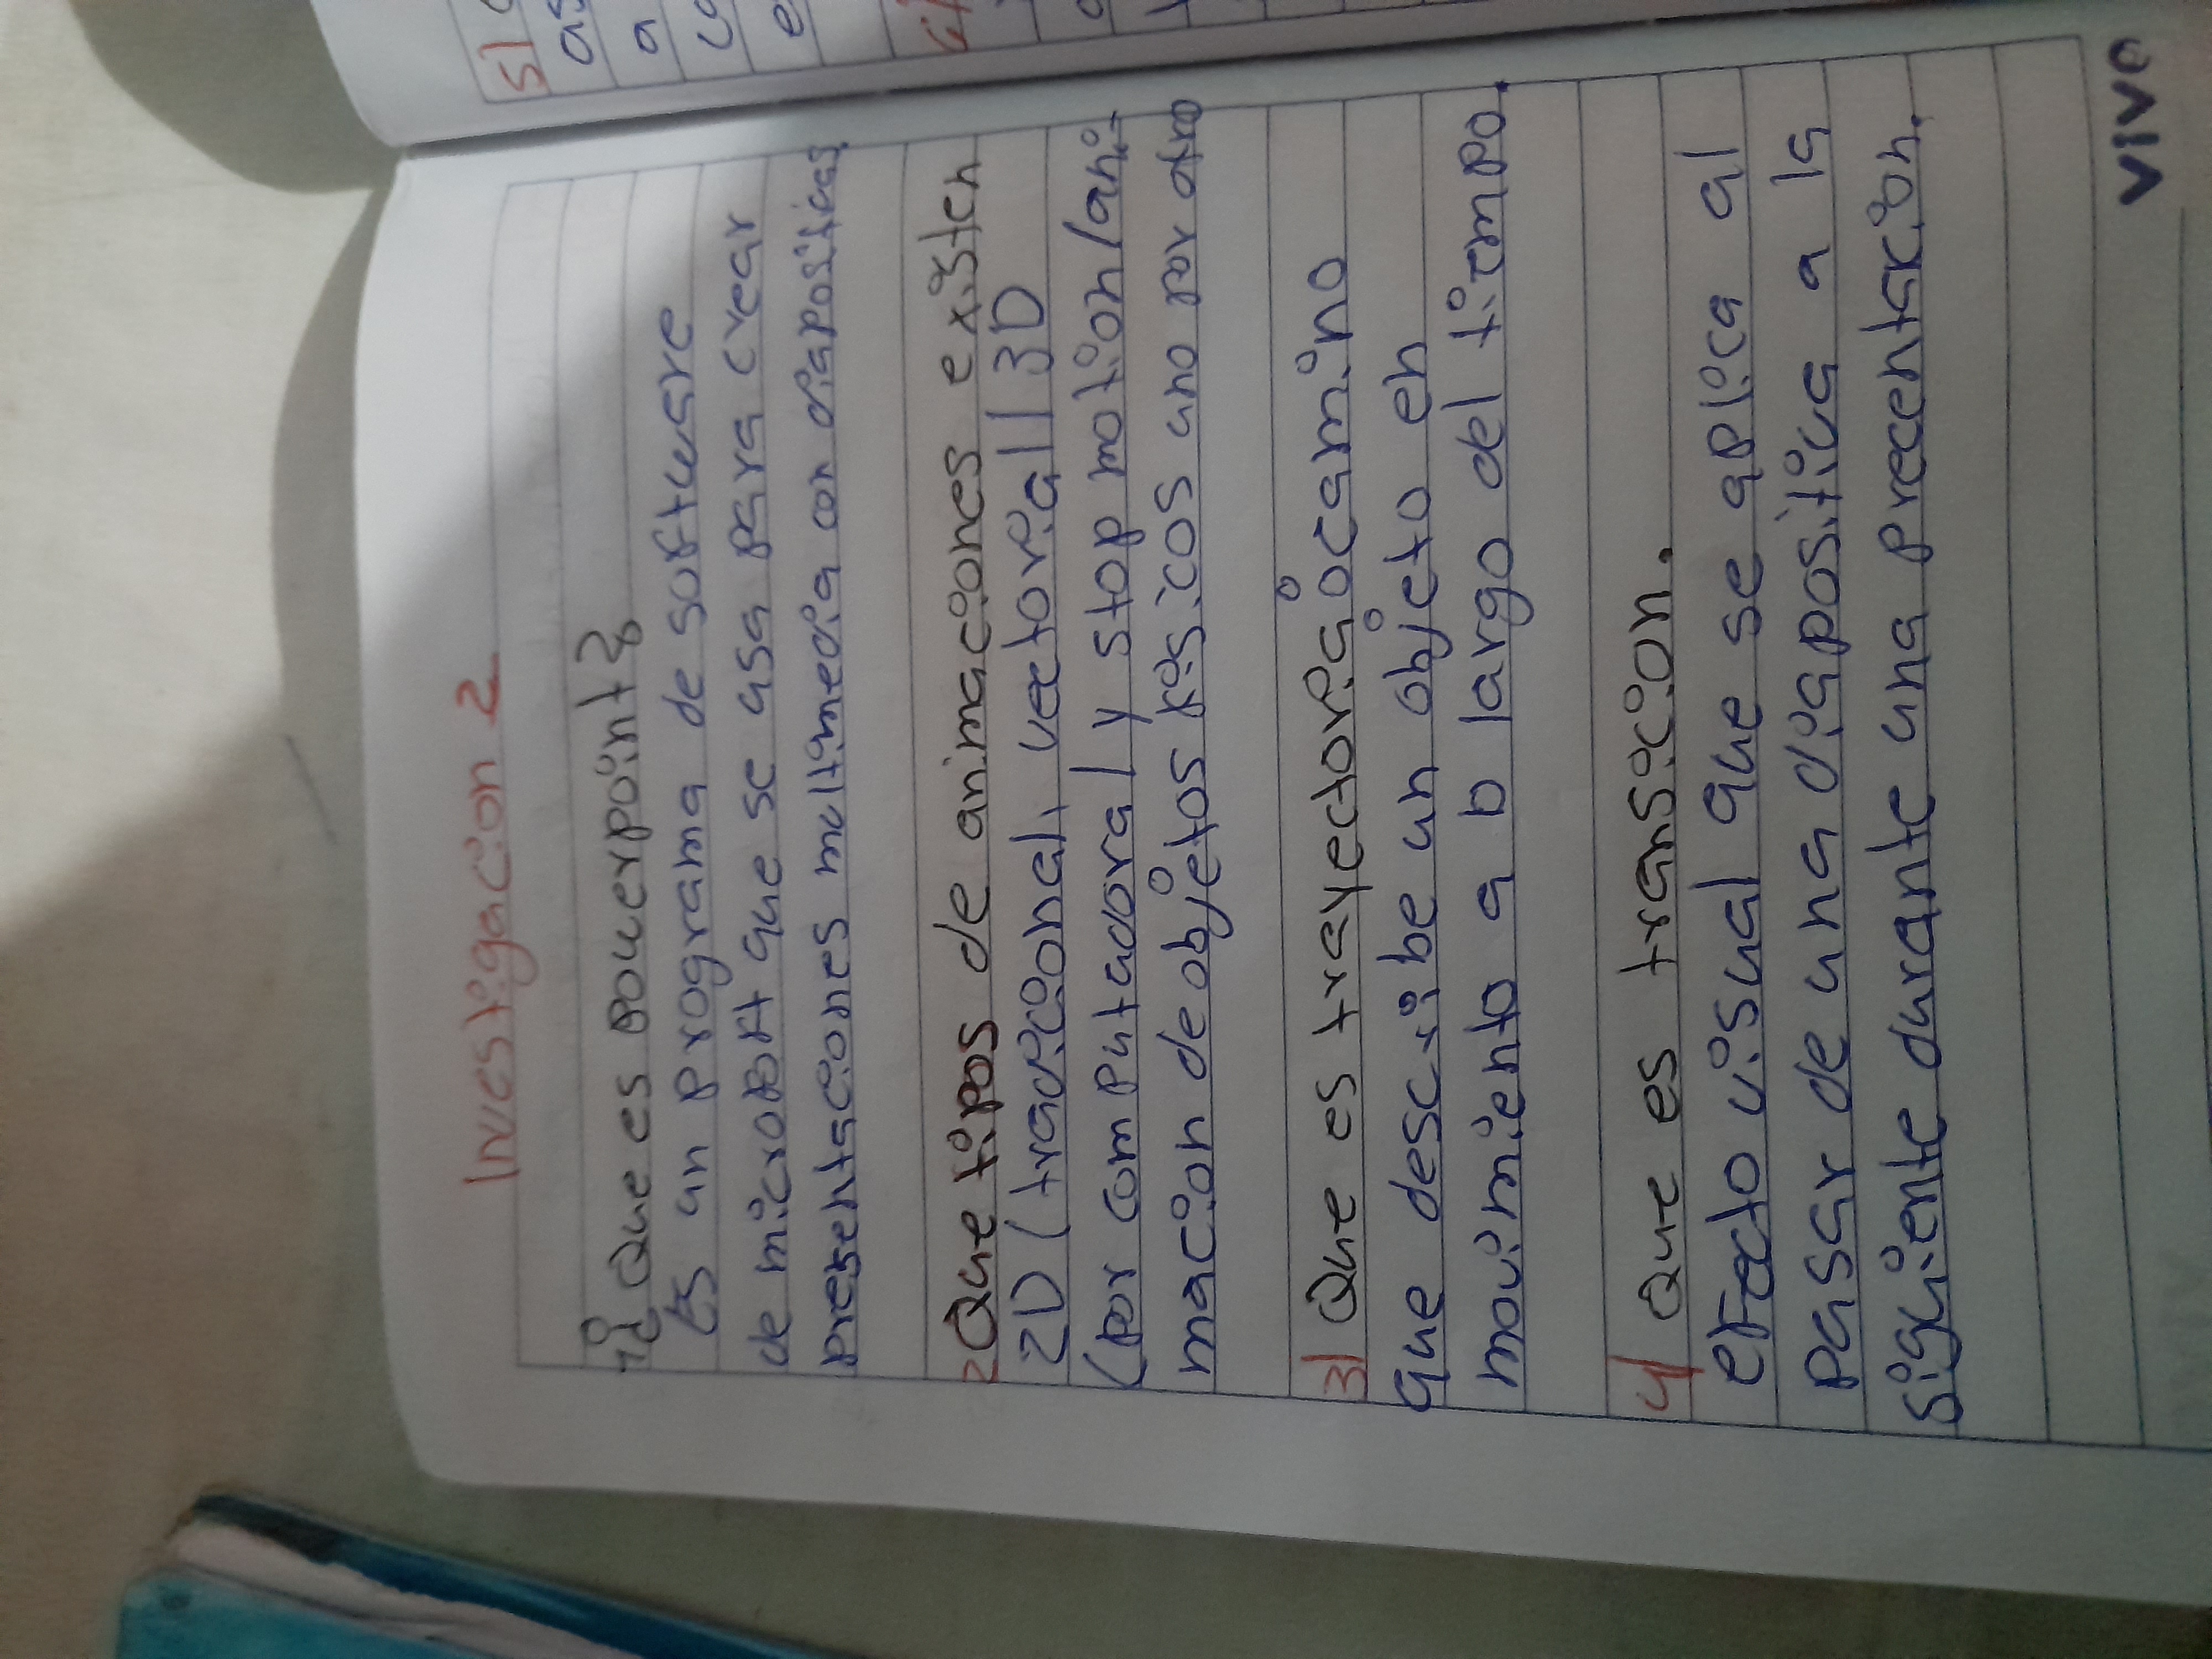 Investigacion 2
1¿ Que es powerpoint?
Es un programa de software
de microsoft que se usa para crear
presentaciones multimedia con diapositivas.
2 Que tipos de animaciones existen
2D (tradicional, vectorial) 3D
(por computadora) y stop motion (ani-
macion de objetos fisicos uno por otro
3) Que es trayectoria ocamino
que describe un objeto en
movimiento a lo largo del tiempo.
4) Que es transicion.
efecto visual que se aplica al
pasar de una diapositiva a la
siguiente durante una precentacion.
VIVO
5)
as
a
e